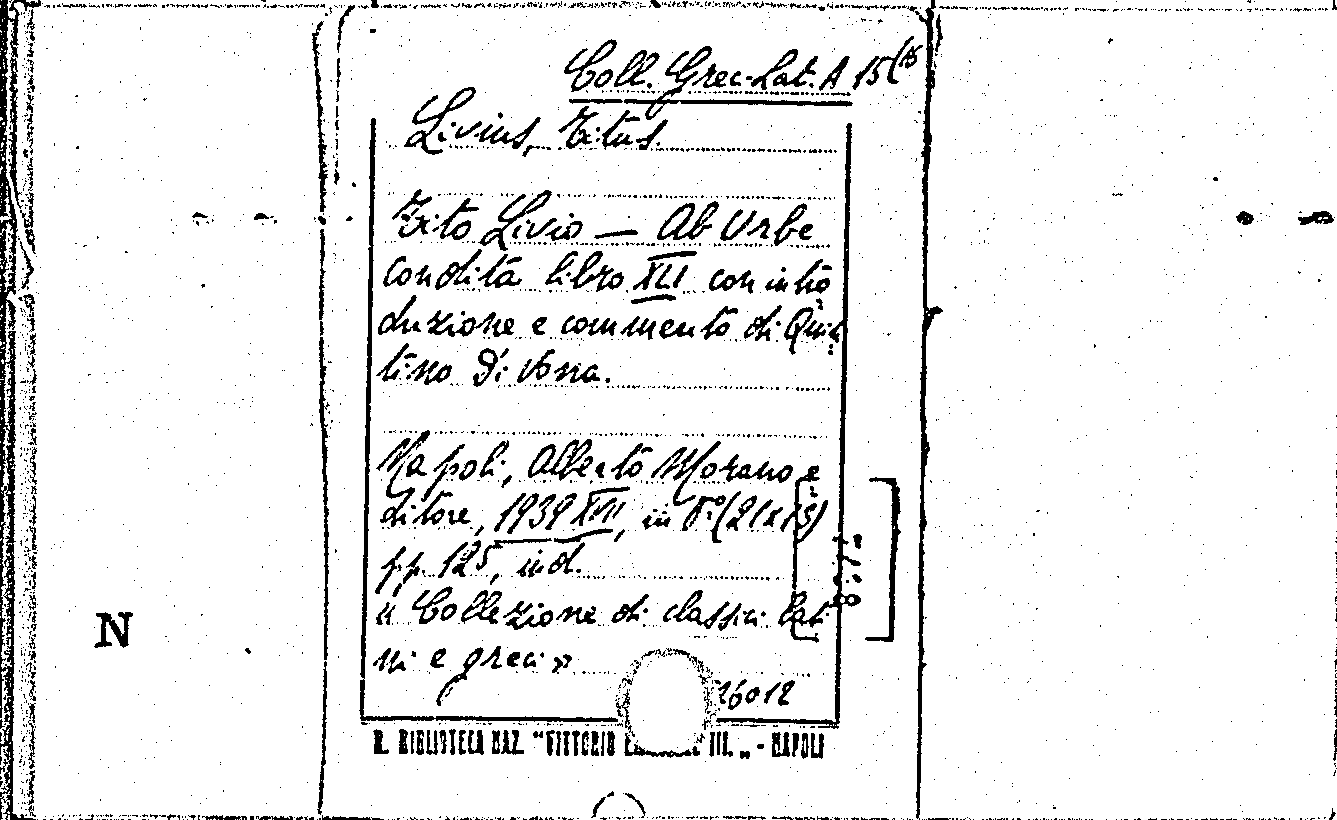 Coll. Grec-Lat. A 15(15
Livius, Titus.
Tito Livio — Ab Urbe
condita libro XLI con intro
duzione e commento di Quin
tino Di Vona.
Napoli, Alberto Morano e
ditore, 1939 XVII, in 8°. (21x15)
pp. 125, ind.
« Collezione di classici lati
ni e greci »
26012
N
R. BIBLIOTECA NAZ. "VITTORIO III. „ - NAPOLI